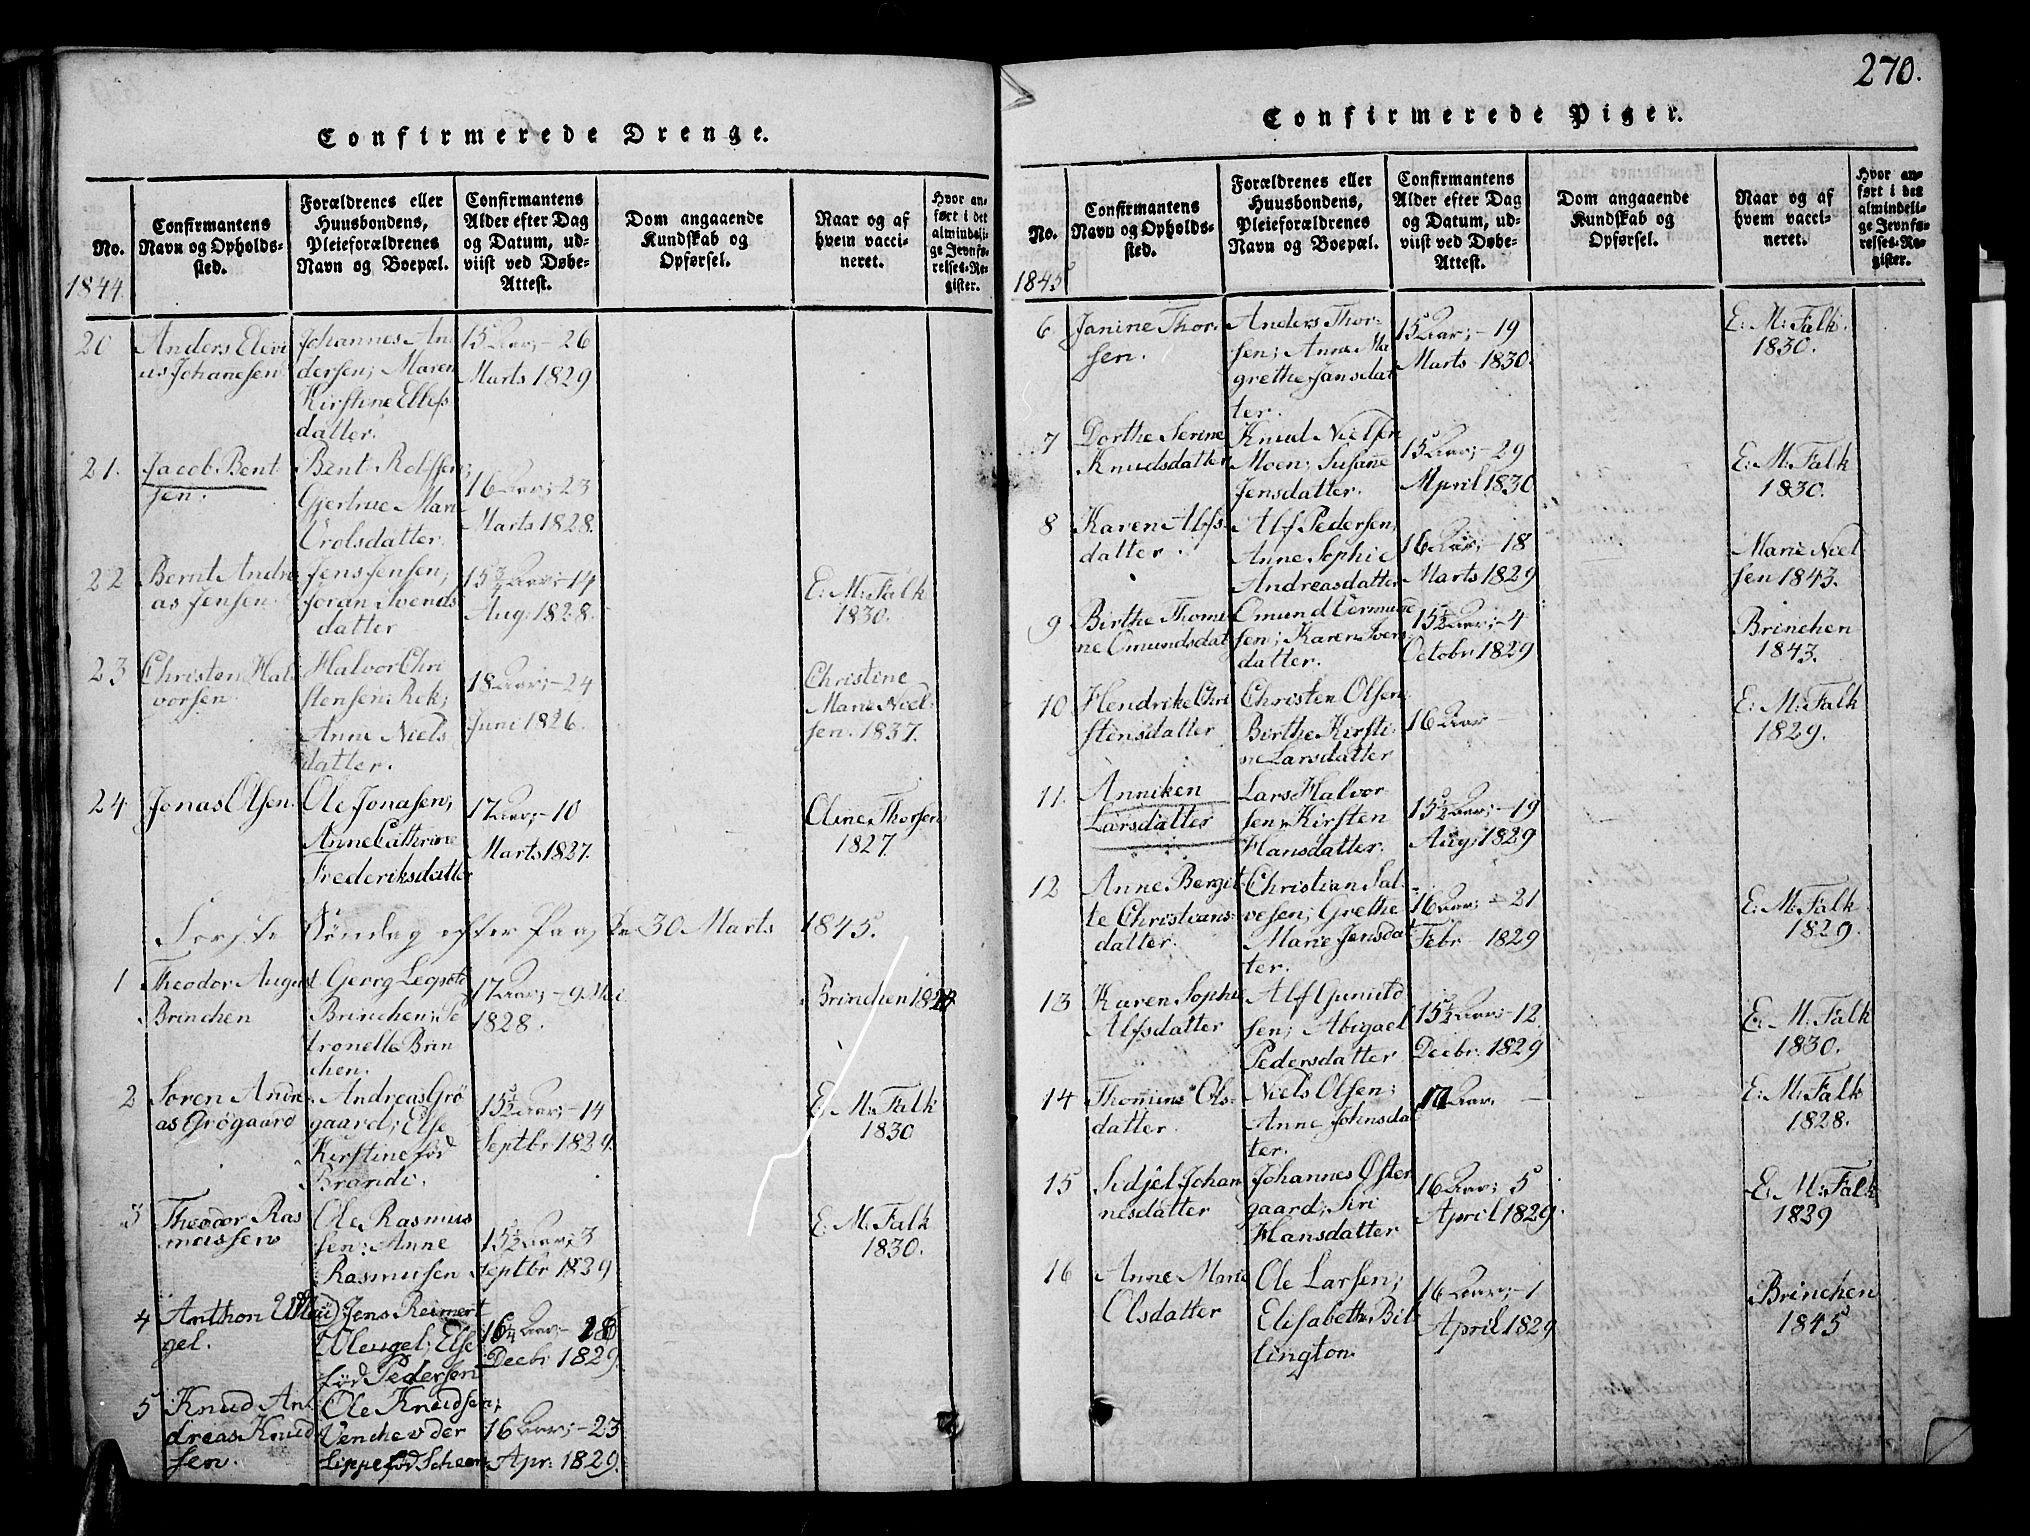 270.
Confirmerede Drenge.
No.
Confirmantens
Navn og Opholds-
sted.
Forældrenes eller
Huusbondens,
Pleieforældrenes
Navn og Boepæl.
Confirmantens
Alder efter Dag
og Datum, ud-
viist ved Døbe-
Attest.
Dom angaaende
Kundskab og
Opførsel.
Naar og af
hvem vacci-
neret.
Hvor an-
ført i det
almindeli-
ge Jevnfø-
relses-Re-
gister.
1844
20
Anders Elevi
us Johanesen
Johannes An
dersen; Maren
Kirstine Ellefs
datter.
15 Aar; - 26
Marts 1829
21.
Jacob Bent
sen.
Bent Rolfsen;
Gjertrue Marie
Trolsdatter.
16 Aar; 23
Marts 1828.
22
Bernt Andre
as Jensen.
Jens Jensen;
Joran Svends
datter
15 3/4 Aar; - 14
Aug. 1828.
E: M: Falk
1830.
23
Christen Hal
vorsen.
Halvor Chri
stensen Rek;
Anne Niels
datter.
18 Aar; - 24
Juni 1826.
Christine
Marie Noel
sen. 1837.
24
Jonas Olsen.
Ole Jonasen;
Anne Cathrine
Frederiksdatter
17 Aar; - 10
Marts 1827.
Oline Thorsen
1827.
Første Søndag efter Paas De 30 Marts 1845.
1
Theodor August
Brinchen
Georg
Brinchen; Pe
tronelle Brin
chen.
17 Aar; - 9 Mai
1828.
Brinchen
2
Søren Andre
as Grögaard
Andreas Grö
gaard; Else
Kirstine fød
Brandi.
15 1/2 Aar; - 14
Septbr 1829.
E. M: Falk
1830
3
Theodor Ras
mussen
Ole Rasmus
sen; Anne
Rasmusen
15 1/2 Aar; 3
Septbr 1839
E. M. Falk
1830.
4
Anthon
gel.
Jens Reimert
Wleugel; Else
fød Pedersen
16 1/4 Aar; - 28
Decbr 1829.
5
Knud An
dreas Knud
sen.
Ole Knudsen;
Venche v der
Lippe fød Scheen
16 Aar; - 23
Apr: 1829.
Confirmerede Piger.
No.
Confirmantens
Navn og Opholds-
sted.
Forældrenes eller
Huusbondens,
Pleieforældrenes
Navn og Boepæl.
Confirmantens
Alder efter Dag
og Datum, ud-
viist ved Døbe-
Attest.
Dom angaaende
Kundskab og
Opførsel.
Naar og af
hvem vacci-
neret.
Hvor an-
ført i det
almindeli-
ge Jevnfø-
relses-Re-
gister.
1845
6
Janine Thor
sen.
Anders Thor-
sen; Anne Ma
grethe Jansdat
ter.
15 Aar; - 19
Marts 1830.
E: M: Falk.
1830.
7
Dorthe Serine
Knudsdatter
Knud Nielsen
Moen; Susane
Jensdatter.
15 Aar; - 29
April 1830
E: M: Falk
1830.
8
Karen Alfs
datter.
Alf Pedersen;
Anne Sophie
Andreasdatter
16 Aar; - 18
Marts 1829
Marie Noel
sen 1843.
9
Birthe Thomi
ne Omundsdat
Omund Vermund
sen; Karen Ivers
datter.
15 1/2 Aar; - 4
Octobr 1829
Brinchen
1843.
10
Hendrike Chri
stensdatter
Christen Olsen;
Birthe Kirsti
ne Larsdatter
16 Aar -
E: M: Falk
1829.
11.
Anniken
Larsdatter
Lars Halvor
sen; Kirsten
Hansdatter.
15 1/2 Aar; - 19
Aug; 1829
12
Anne Bergit
te Christians
datter.
Christian Sal
vesen; Grethe
Marie Jensdat
ter.
16 Aar; - 21
Febr - 1829
E: M: Falk
1829.
13
Karen Sophie
Alfsdatter
Alf Gunuld
sen; Abigael
Pedersdatter
15 1/2 Aar; - 12.
Decbr. 1829
E: M: Falk
1830.
14
Thomine Ols-
datter.
Niels Olsen;
Anne Johnsdat
ter.
17 Aar. -
E: M: Falk
1828.
15
Sidsel Johan
nesdatter
Johannes Øster
gaard; Siri
Hansdatter
16 Aar; 5
April 1829.
E: M: Falk
1839
16
Anne Marie
Olsdatter
Ole Larsen;
Elisabeth Bil
lington.
16 Aar; - 1
April 1829
Brinchen
1845